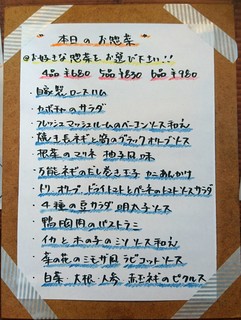 本日のお惣菜
@お好きな惣菜をお選び下さい!!
4品 ¥680 5品 ¥830 6品 ¥980
・自家製ロースハム
・カボチャのサラダ
・フレッシュマッシュルームのベーコンソース和え
・焼き長ネギと筍のブラックオリーブソース
・根菜のマリネ 柚子風味
・万能ネギのだし巻き玉子 かにあんかけ
・トリ、オリーブ、ドライトマトとペンネのトマトソースサラダ
・4種の豆サラダ 明太子ソース
・鴨胸肉のパストラミ
・イカと木の子のミソソース和え
・菜の花のミモザ風 ラビゴットソース
・白菜・大根・人参・赤玉ネギのピクルス